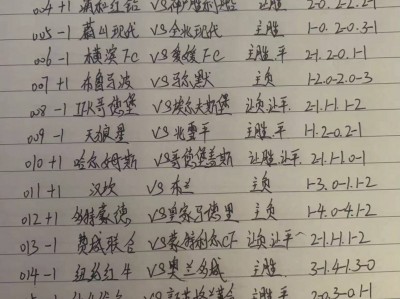 004 +1 浦和红钻 VS 神户胜利船 让胜 2-0.2-2.2-1
005 -1 蔚山现代 VS 全北现代 主胜 1-0.2-0.3-1
006 -1 横滨FC VS 爱媛FC 主胜.平 2-1.2-0.1-1
007 +1 布鲁马波 VS 马尔默 主负 1-2.0-2.0-3
008 -1 IFK哥德堡 VS 埃尔夫斯堡 让负让平 2-1.1-1.1-2
009 -1 天狼星 VS 北雪平 主胜.平 1-1.2-0.2-1
010 +1 哈尔姆斯 VS 哥德堡盖斯 让胜让平 2-1.1-1.0-1
011 +1 汉坎 VS 布兰 主负 1-3.0-1.1-2
012 +1 多特蒙德 VS 皇家马德里 主负 1-4.0-4.1-2
013 -1 费城联合 VS 蒙特利尔CF 让负让平 2-1.1-1.1-2
014 -1 纽约红牛 VS 奥兰多城 主胜 3-1.4-1.3-0
2-0.3-0.1-1